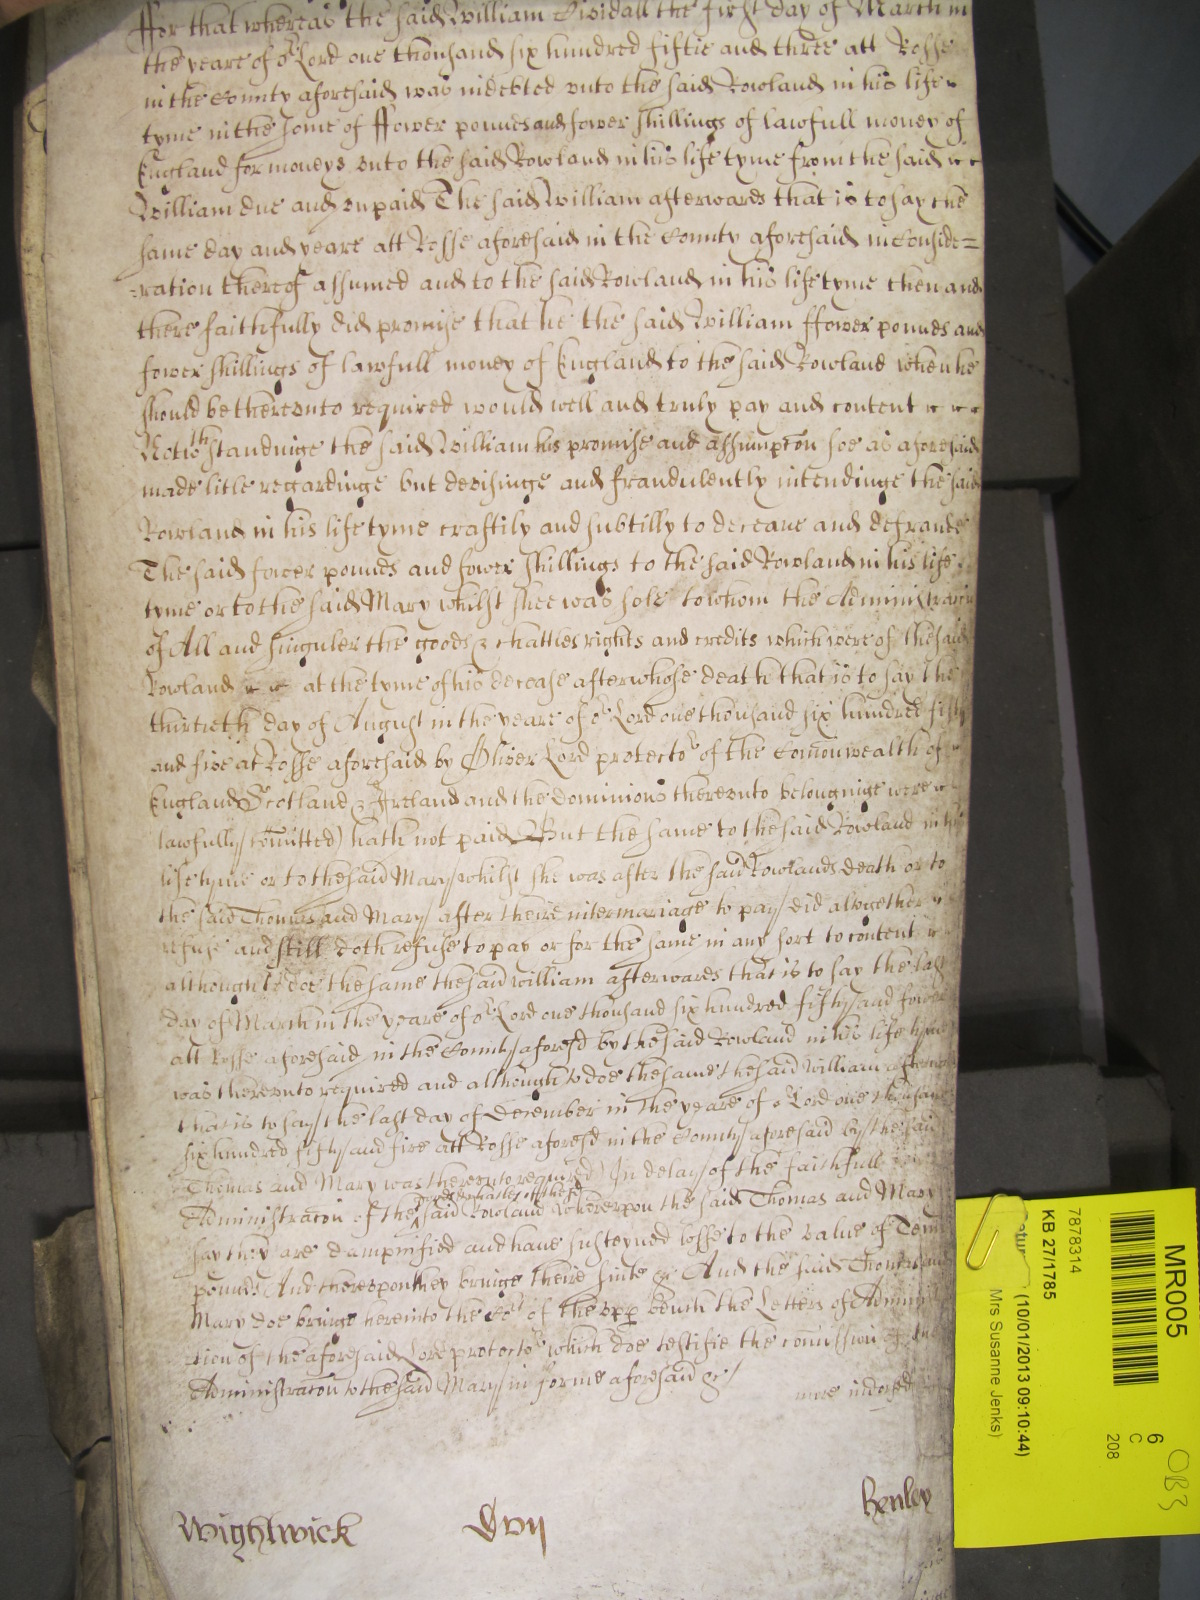 ffor that whereas the said William the first day of March in
the yeare of or Lord one thousand six hundred fiftie and three att Rosse
in the County aforesaid was indebted unto the said Rowland in his life
tyme in the some of ffower pounds and fower shillings of lawfull money of
England for moneys unto the said Rowland in his life tyme from the said
William due and unpaid The said William afterwards that is to say the
same day and yeare att Rosse aforesaid in the County aforesaid in Conside=
=ration thereof assumed and to the said Rowland in his life tyme then and
there faithfully did promise that he the said William ffower pounds and
fower shillings of lawfull money of England to the said Rowland when he
should be thereunto required would well and truly pay and content
Notwthstandinge the said William his promise and assumpcon soe as aforesaid
made litle regardinge but devisinge and fraudulently intendinge the said
Rowland in his life tyme craftily and subtilly to deceave and defraude
The said fower pounds and fower shillings to the said Rowland in his life
tyme or to the said Mary whilst shee was sole to whom the Administracon
of All and singuler the goods & chattles rights and credits which were of the said
Rowland at the tyme of his decease after whose death that is to say the
thirtieth day of August in the yeare of or Lord one thousand six hundred fifty
and five at Rosse aforesaid by Oliver Lord protector of the Comonwealth of
England Scotland & Ireland and the dominions thereunto belonginge were
lawfully comitted) hath not paid But the same to the said Rowland in his
life tyme or to the said Mary whilst she was after the said Rowlands death or to
the said Thomas and Mary after theire intermariage to pay did altogether
refuse and still doth refuse to pay or for the same in any sort to content
although to doe the same the said William afterwards that is to say the last
day of March in the yeare of or Lord one thousand six hundred fifty and fower
att Rosse aforesaid in the County aforesd by the said Rowland in his life tyme
was thereunto required and although to doe the same the said William afterwards
that is to say the last day of December in the yeare of or Lord one thousand
six hundred fifty and five att Rosse aforesd in the County aforesaid by the said
Thomas and Mary was thereunto required In delay of the faithfull
goods & chattles of the sd
Administracon of the said Rowland Whereupon the said Thomas and Mary
say they are dampnified and have susteyned losse to the value of Tenn
pounds And thereupon they bringe theire suite &c And the said Thomas and
Mary doe bringe hereinto the Cort of the upp bench the Letters of Administra
tion of the aforesaid Lord protector which doe testifie the comission of the
Administracon to the said Mary in forme aforesaid &c/
more indorsed
Wightwick
Henley
MR005
6
C
208
OB3
7878314
KB 27/1785
(10/01/2013 09:10:44)
Mrs Susanne Jenks)